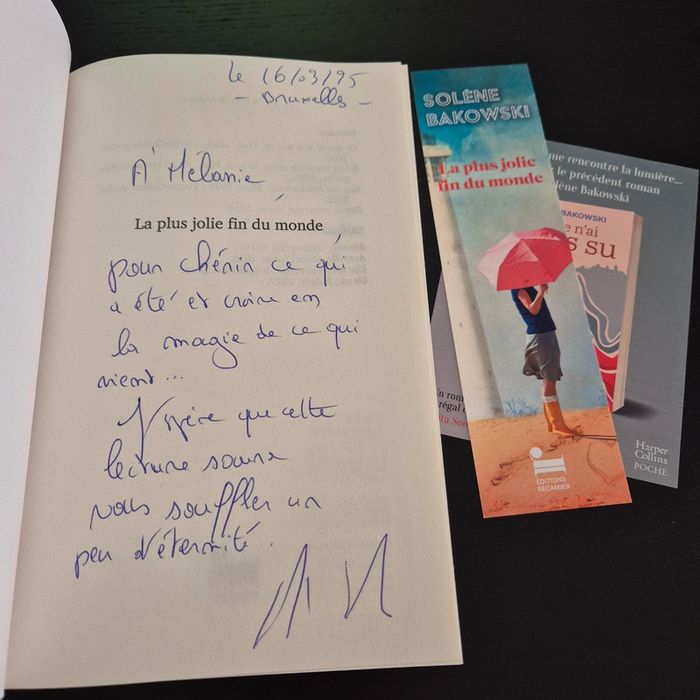 le 16/03/25
- Bruxelles -
A Mélanie
La plus jolie fin du monde
pour chérir ce qui
a été et croire en
la magie de ce qui
vient...
J'espère que cette
lecture saura
vous souffler un
peu d'éternité.
SOLÈNE
BAKOWSKI
La plus jolie
fin du monde
ÉDITIONS
RÉCAMIER
une rencontre la lumière...
le précédent roman
Solène Bakowski
BAKOWSKI
e n'ai
s su
un rom
régal
ta Son
Harper
Collins
POCHE